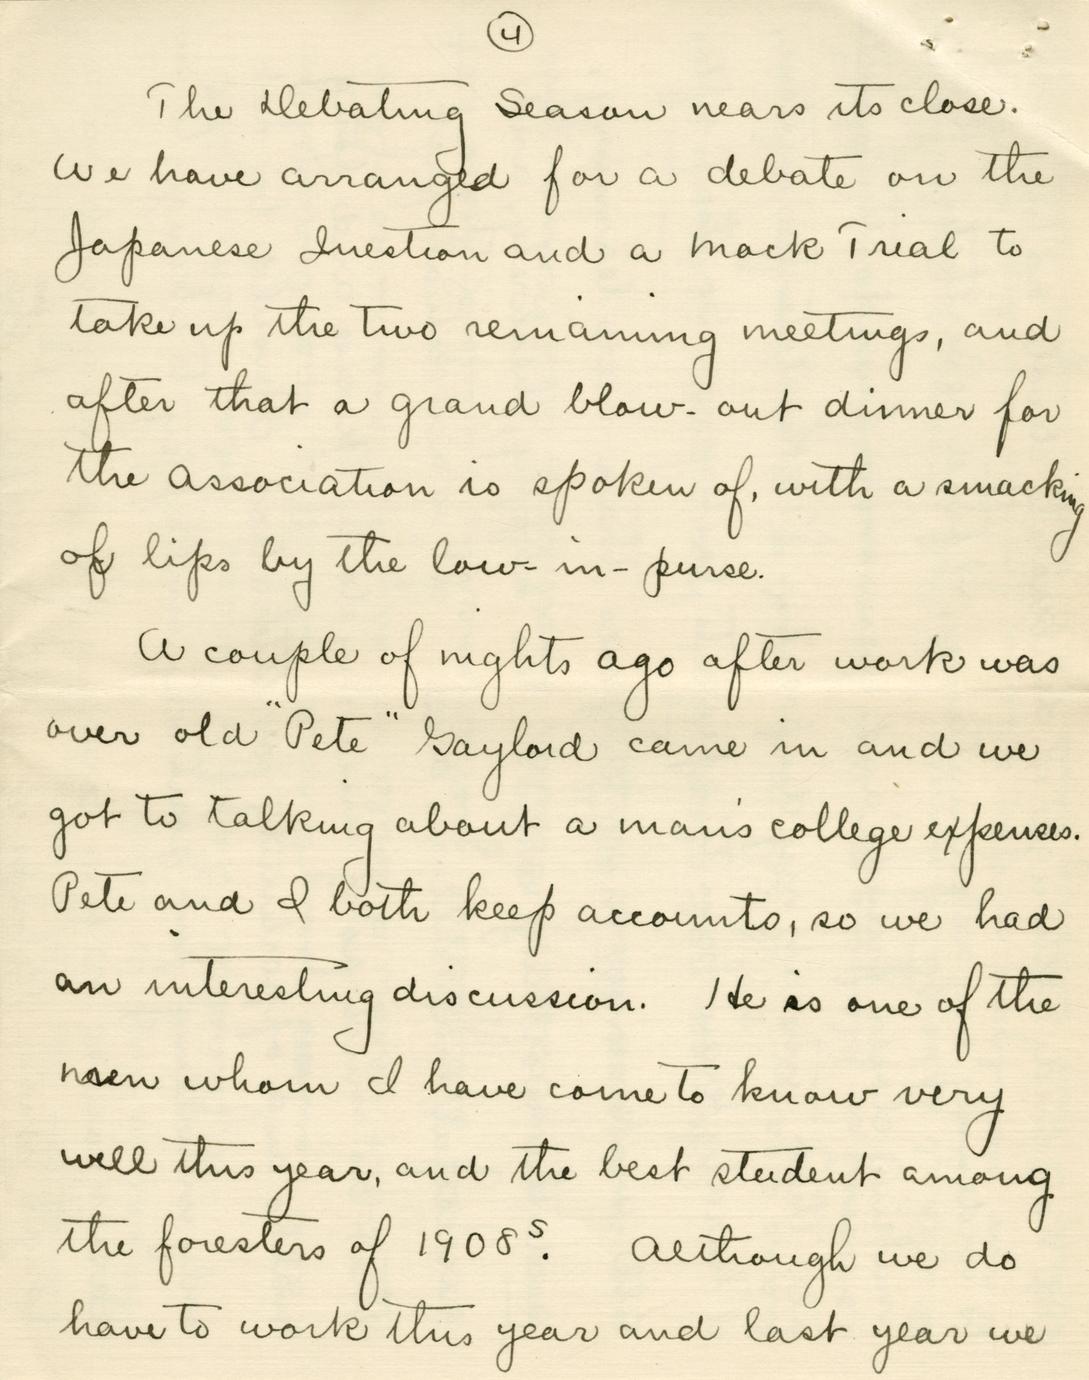 4
The Debating Season nears its close.
We have arranged for a debate on the
Japanese Question and a Mock Trial to
take up the two remaining meetings, and
after that a grand blow-out dinner for
the association is spoken of, with a smacking
of lips by the low-in-purse.
A couple of nights ago after work was
over old "Pete" Gaylord came in and we
got to talking about a man's college expenses.
Pete and I both keep accounts, so we had
an interesting discussion. He is one of the
men whom I have come to know very
well this year, and the best student among
the foresters of 1908s. Although we do
have to work this year and last year we